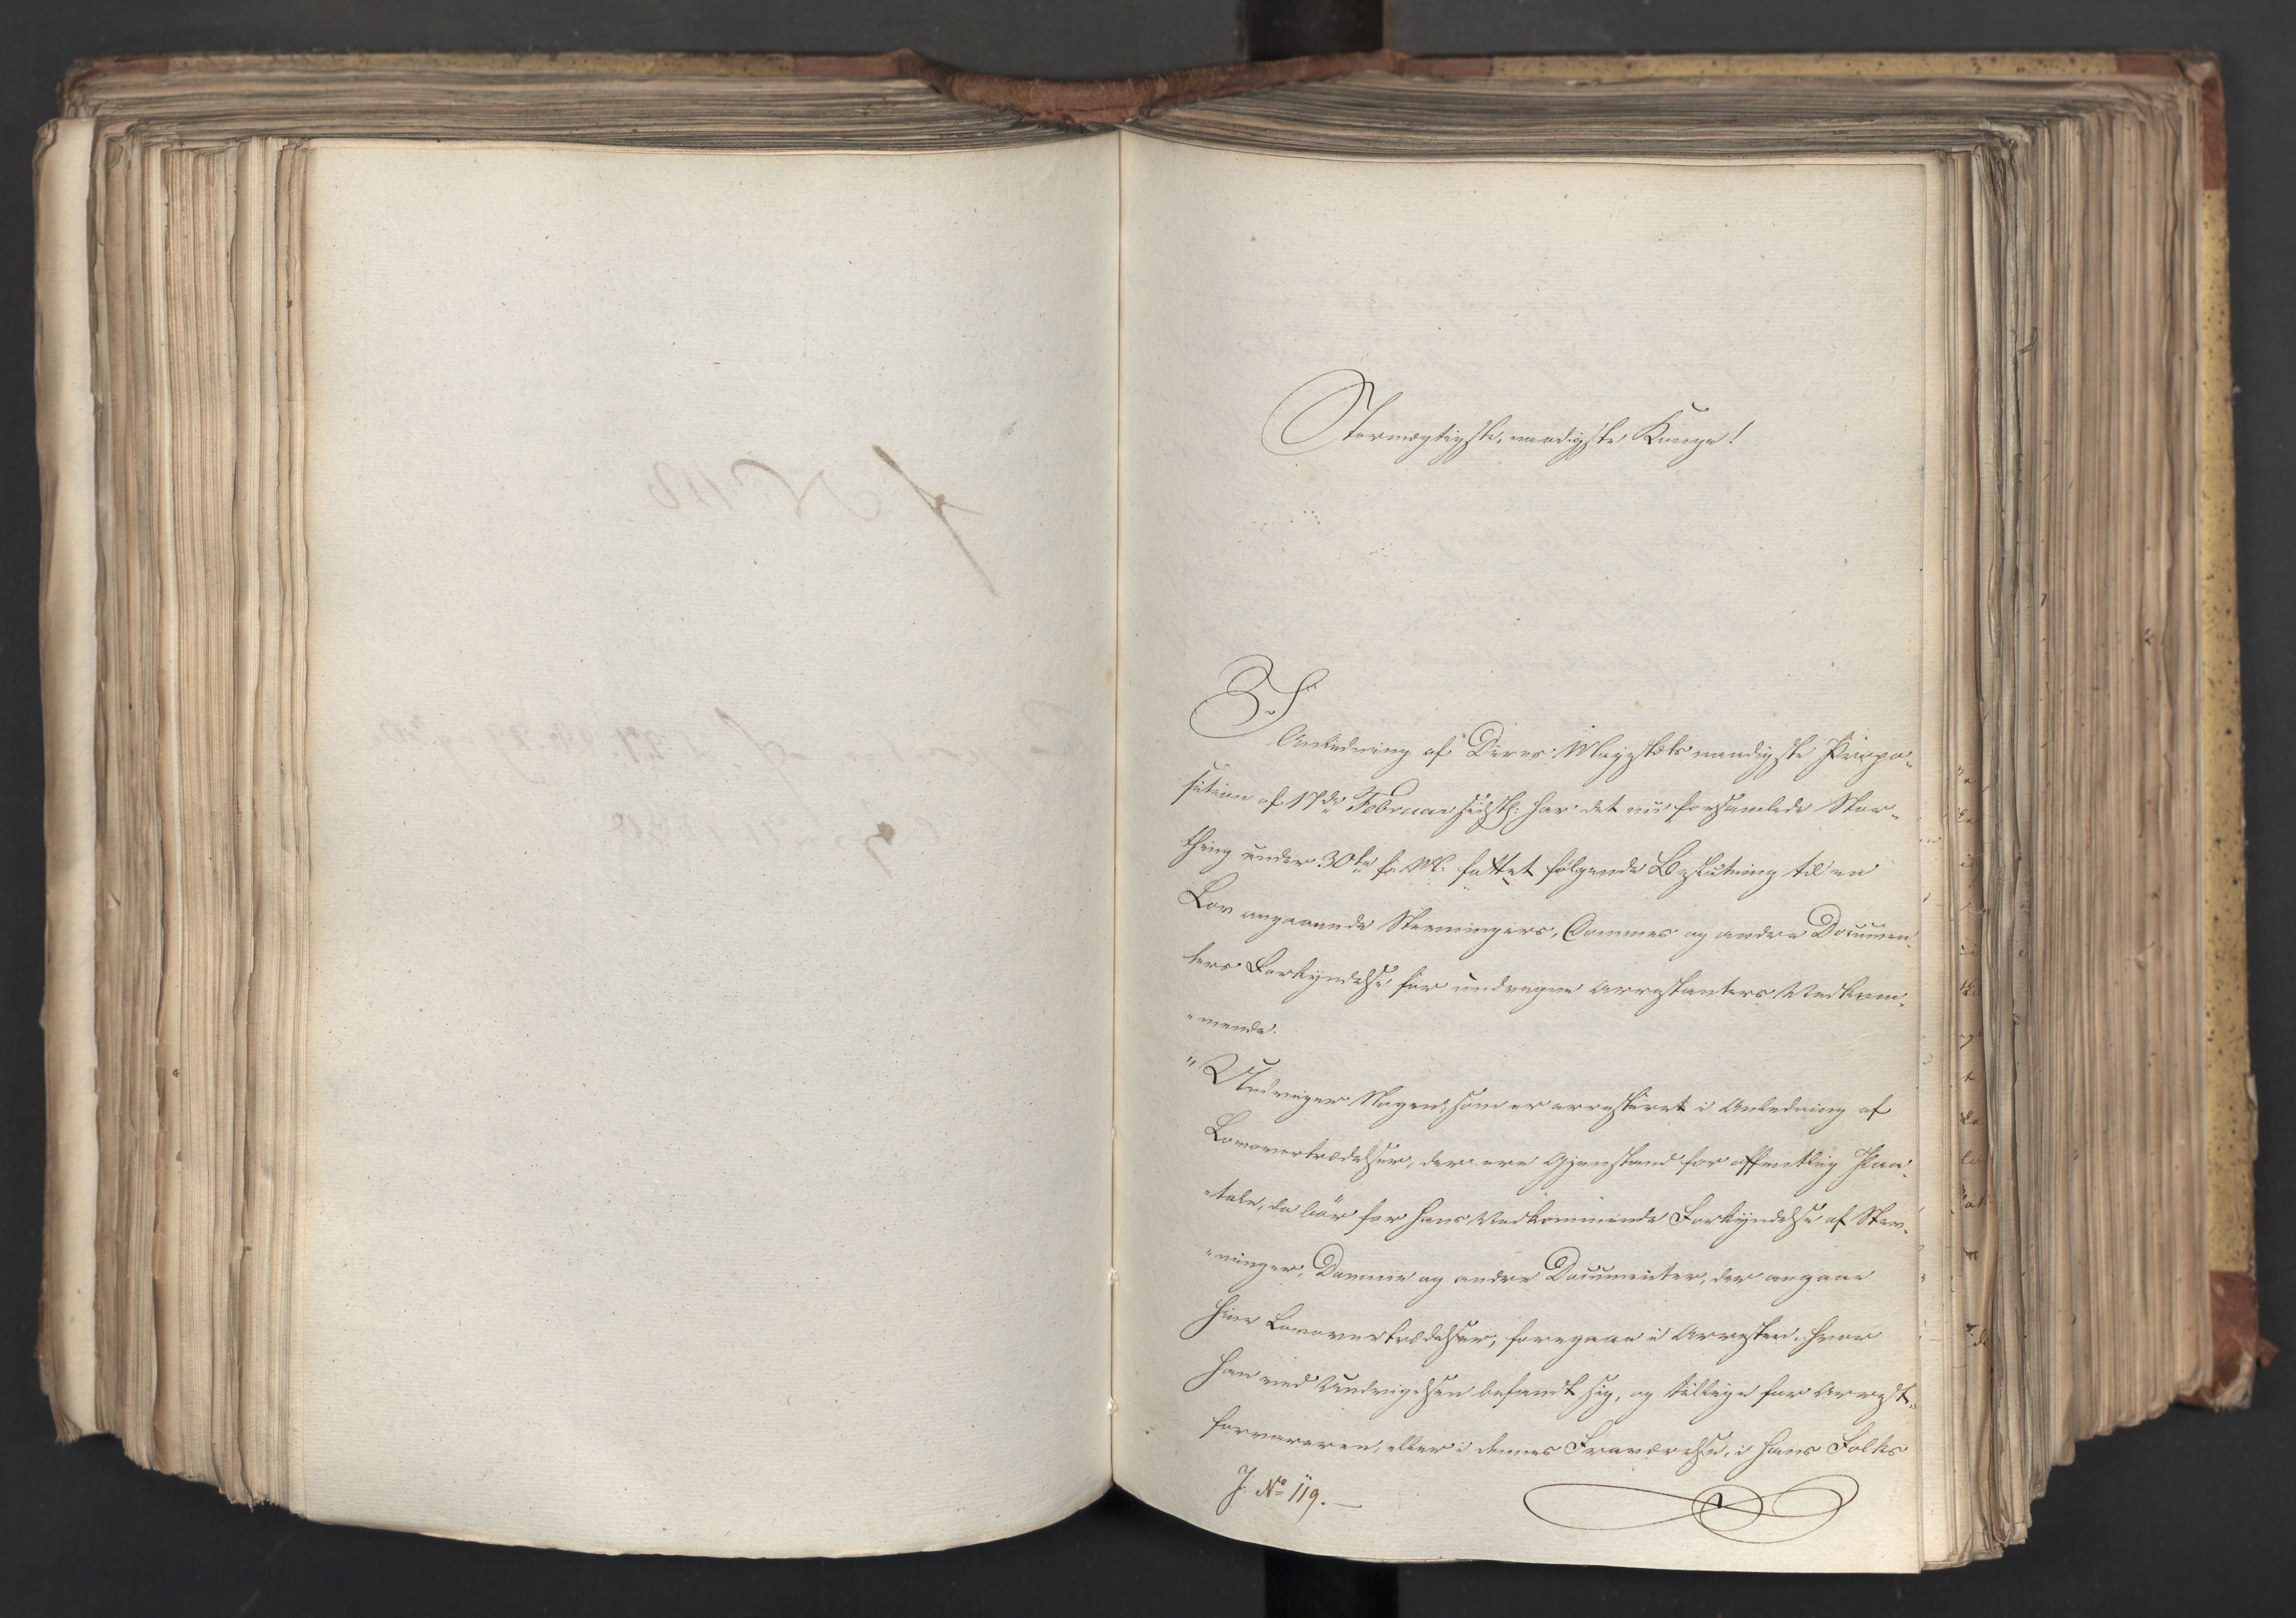 Stormægtigste, naadigste Konge!
I
Anledning af Deres Majestæts naadigste Propo-
sition af 17de Februar sidstl: har det nu forsamlede Stor-
thing under 30te f. M. fattet følgende Beslutning til en
Lov angaaende Stevningers, Dommes og andre Documen-
ters Forkyndelse for undvegne Arrestanters Vedkom-
"mende.
"Undviger Nogen, som er arresteret i Anledning af
Lovovertrædelser, der ere Gjenstand for offentlig Paa-
"tale, da bör for hans Vedkommende Forkyndelse af Stev-
"ninger, Domme og andre Documenter, der angaae
hine Lovovertrædelser, foregaae i Arresten, hvor
han ved Undvigelsen befandt sig, og tillige for Arrest-
forvareren, eller i dennes Fraværelse, i hans Folks
J. No 119.